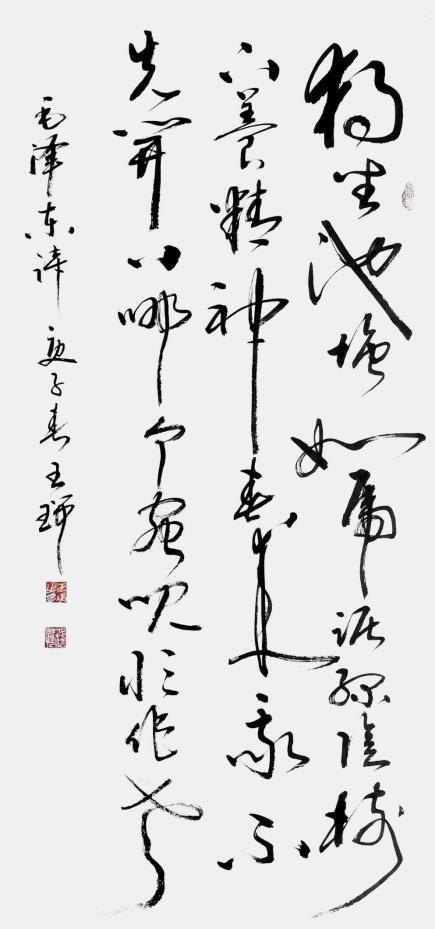 独坐池塘如虎踞绿荫树
下养精神春来我不
先开口哪个虫儿敢作声
毛泽东诗 庚子春 王